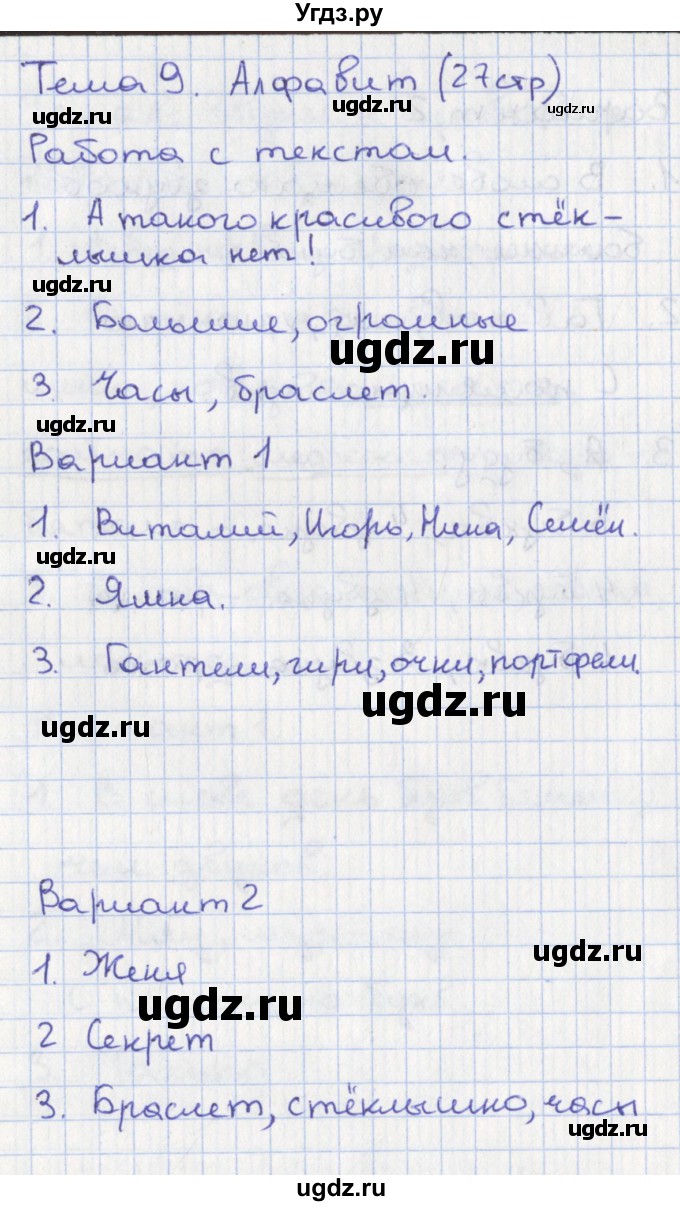 Угдз.ру
Тема 9. Алфавит (27стр)
ugdz.ru ugdz.ru ugdz.ru
Работа с текстом.
1. А такого красивого стёк-
лышка нет!
ugdz.ru
2. Большие, огромные
ugdz.ru
3. Часы, браслет.
ugdz.ru
Вариант 1
1. Виталий, Игорь, Нина, Семён.
ugdz.ru
2. Ямна.
3. Гантели, гири, очки, портфели.
ugdz.ru
ugdz.ru
Вариант 2
ugdz.ru
1. Женя
ugdz.ru
2 Секрет
3. Браслет, стёклышко, часы
ugdz.ru
ugdz.ru